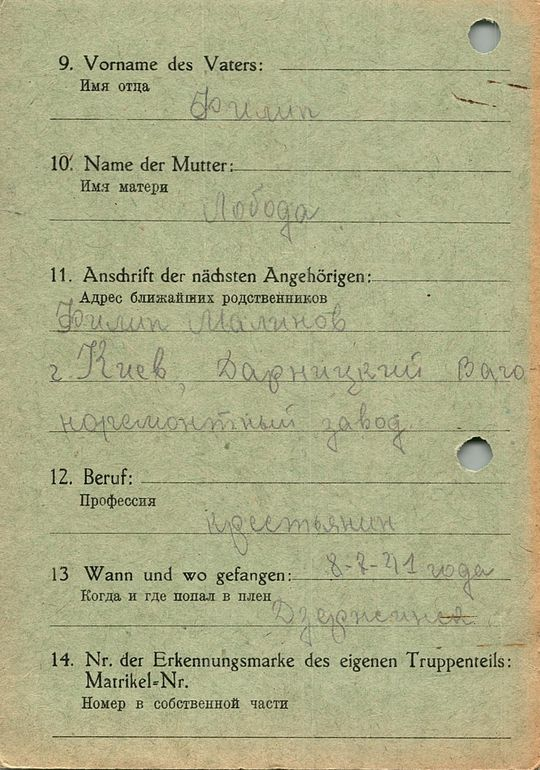 9. Vorname des Vaters:
Имя отца
Филип
10. Name der Mutter:
Имя матери
Лобода
11. Anschrift der nächsten Angehörigen:
Адрес ближайших родственников
Филип Малинов
г. Киев, Дарницкий Ваго-
норемонтный завод
12. Beruf:
Профессия
крестьянин
13 Wann und wo gefangen: 8-7-41 года
Когда и где попал в плен
14. Nr. der Erkennungsmarke des eigenen Truppenteils:
Matrikel-Nr.
Номер в собственной части